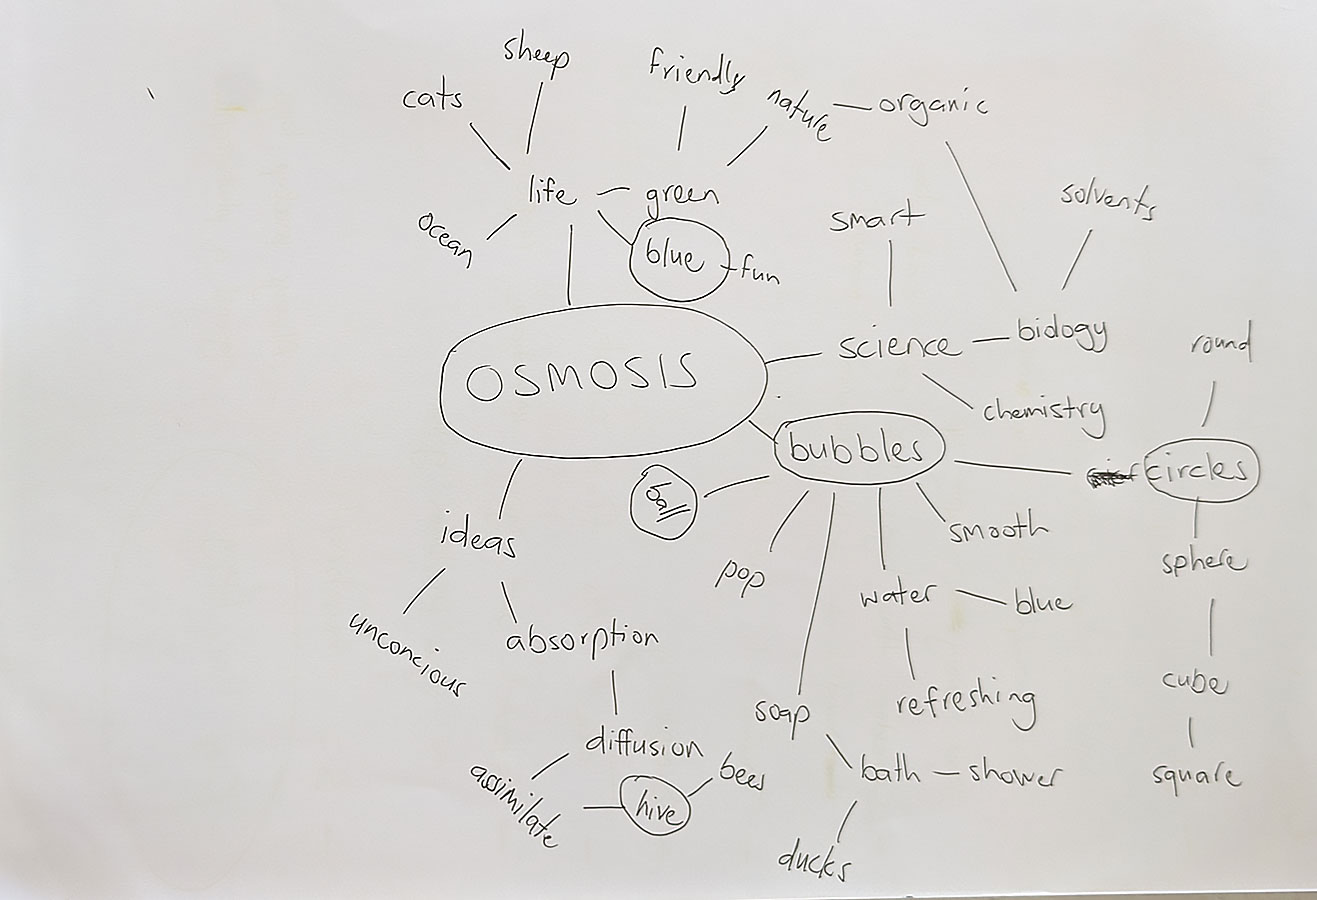 sheep
friendly
cats
nature
organic
life
green
solvents
smart
ocean
blue
fun
science
biology
round
OSMOSIS
chemistry
bubbles
circles
ball
smooth
ideas
sphere
pop
water
blue
unconcious
absorption
cube
refreshing
soap
diffusion
bees
bath
shower
square
assimilate
hive
ducks